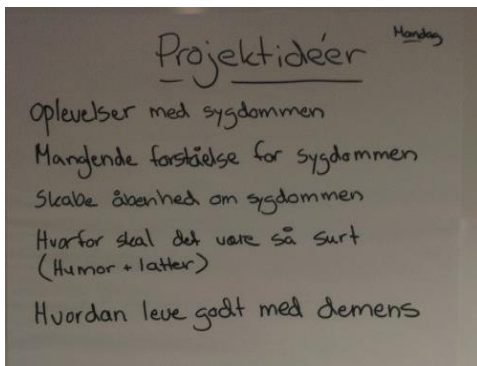 Mandag
Projektidéer
Oplevelser med sygdommen
Manglende forståelse for sygdommen
Skabe åbenhed om sygdommen
Hvorfor skal det være så surt
(Humor + latter)
Hvordan leve godt med demens